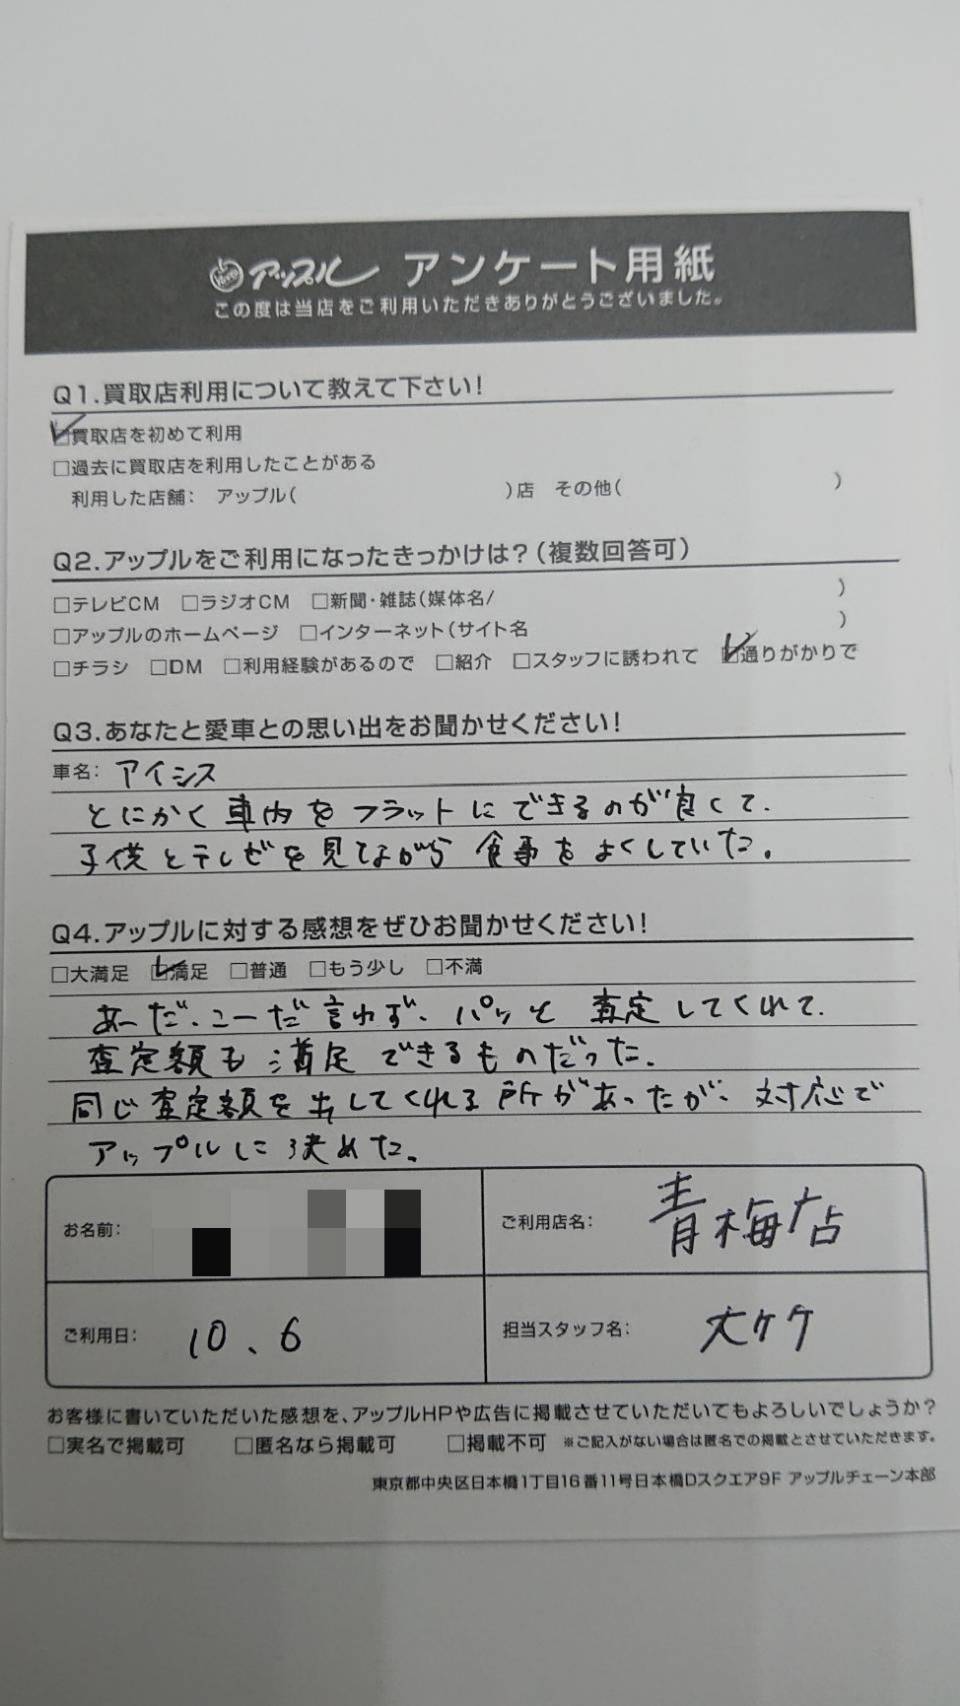 アップル アンケート用紙
この度は当店をご利用いただきありがとうございました。
Q1.買取店利用について教えて下さい!
☑買取店を初めて利用
□過去に買取店を利用したことがある
利用した店舗: アップル( )店 その他( )
Q2.アップルをご利用になったきっかけは?(複数回答可)
□テレビCM □ラジオCM □新聞・雑誌(媒体名/ )
□アップルのホームページ □インターネット(サイト名 )
□チラシ □DM □利用経験があるので □紹介 □スタッフに誘われて ☑通りがかりで
Q3.あなたと愛車との思い出をお聞かせください!
車名: アイシス
とにかく車内をフラットにできるのが良くて、
子供とテレビを見てながら食事をよくしていた。
Q4.アップルに対する感想をぜひお聞かせください!
□大満足 ☑満足 □普通 □もう少し □不満
あーだ、こーだ言わず、パッと査定してくれて、
査定額も満足できるものだった。
同じ査定額を出してくれる所があったが、対応で
アップルに決めた。
お名前:
ご利用店名: 青梅店
ご利用日: 10、6
担当スタッフ名: 大ケケ
お客様に書いていただいた感想を、アップルHPや広告に掲載させていただいてもよろしいでしょうか?
□実名で掲載可 □匿名なら掲載可 □掲載不可 ※ご記入がない場合は匿名での掲載とさせていただきます。
東京都中央区日本橋1丁目16番11号日本橋Dスクエア9F アップルチェーン本部